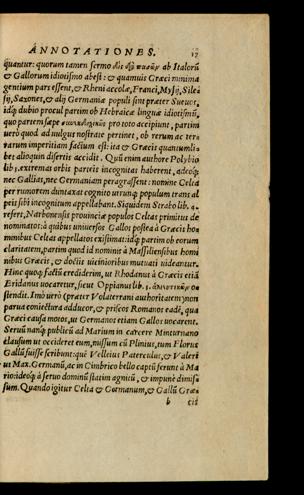 ANNOTATIONES. 17
quantur: quorum tamen sermo δὶς διὰ πασῶν ab Italorū
& Gallorum idiotismo abest: & quamuis Græci minima
gentium pars essent, & Rheni accolæ, Franci, Mysij, Sile
sij, Saxones, & alij Germaniæ populi sint præter Sueuos,
idq; dubio procul partim ob Hebraicæ linguæ idiotismū,
quo partem sæpe pro toto accipiunt, partim
uerò quod ad uulgus nostrate pertinet, ob rerum ac ter
rarum imperitiam factum est: ita & Græcis quamuis li
bet alioquin disertis accidit. Quū enim authore Polybio
lib. 3. extremas orbis partes incognitas haberent, adeóq;
nec Gallias, nec Germaniam peragrassent: nomine Celtæ
per rumorem duntaxat cognito utrunq; populum trans al
peis sibi incognitum appellabant. Siquidem Strabo lib. 4.
refert, Narbonensis prouinciæ populos Celtas primitus de
nominatos: à quibus uniuersos Gallos postea à Græcis ho
minibus Celtas appellatos existimat: idq; partim ob eorum
claritatem, partim quod id nominis à Massiliensibus homi
nibus Græcis, & dociis uicinioribus mutuati uideantur.
Hinc quoq; factū crediderim, ut Rhodanus à Græcis etiā
Eridanus uocaretur, sicut Oppianus lib. 4. ἁλιευτικῶν o=
stendit. Imò uerò (præter Volaterrani authoritatem) non
parua coniectura adducor, & priscos Romanos eadē, qua
Græci causa motos, ut Germanos etiam Gallos uocarent.
Seruū nanq; publicū ad Marium in carcere Minturnano
clausum ut occideret eum, missum cū Plinius, tum Florus
Gallū fuisse scribunt: quē Velleius Paterculus, & Valeri
us Max. Germanū, ac in Cimbrico bello captū ferunt à Ma
rio: ideóq; à seruo dominū statim agnitū, & impunè dimis
sum. Quando igitur Celta & Germanum, & Gallū Græci
b cis